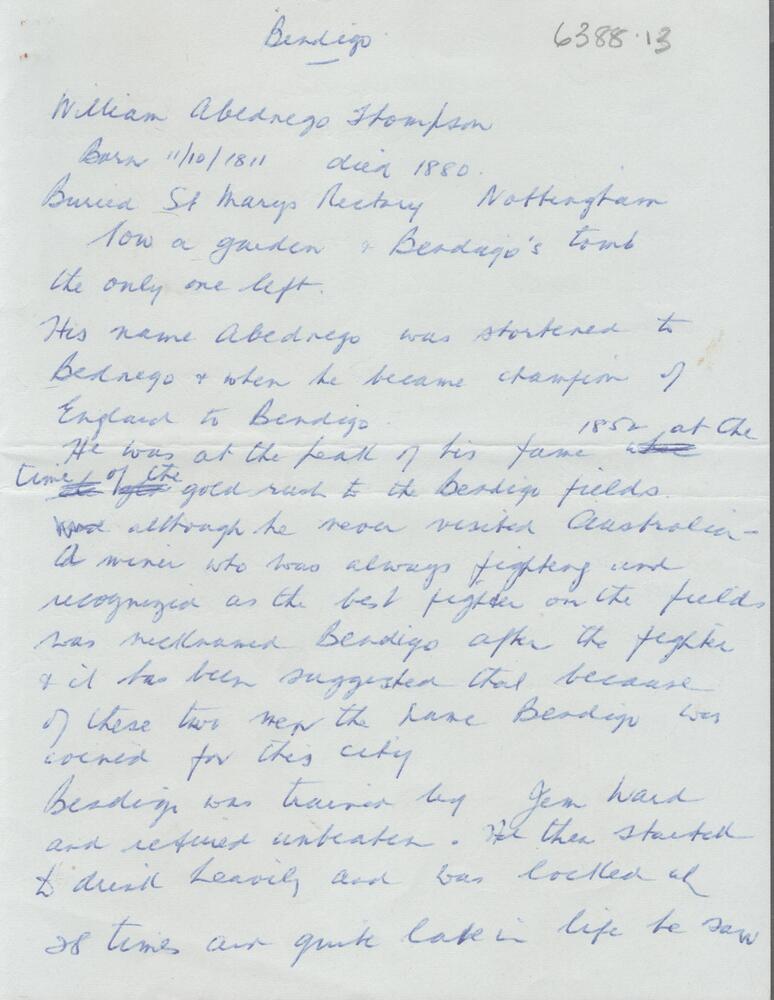 Bendigo 6388.13
William Abednego Thompson
Born 11/10/1811 died 1880.
Buried St Marys Rectory Nottingham
Now a garden & Bendigo's tomb
the only one left.
His name Abednego was shortened to
Bednego & when he became champion of
England to Bendigo.
He was at the peak of his fame 1852 at the
time of the gold rush to the Bendigo fields.
although he never visited Australia -
A miner who was always fighting and
recognized as the best fighter on the fields
was nicknamed Bendigo after the fighter
& it has been suggested that because
of these two men the name Bendigo was
coined for this city
Bendigo was trained by Jem Ward
and retired unbeaten. He then started
to drink heavily and was locked up
28 times and quite late in life he saw